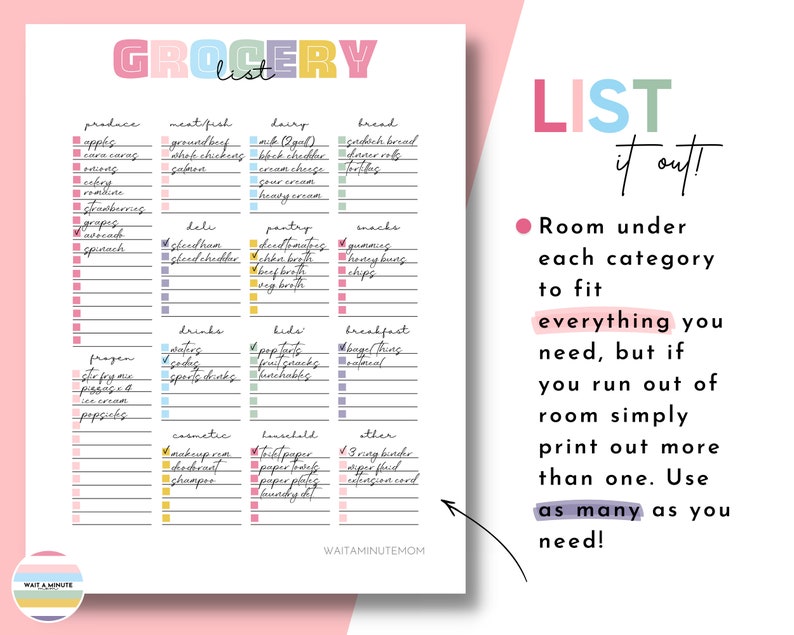 GROCERY
list
produce
apples
cara caras
onions
celery
romaine
strawberries
grapes
avocado
spinach
frozen
stir fry mix
pizzas x 4
ice cream
popsicles
meat/fish
ground beef
whole chickens
salmon
dairy
milk (2 gall)
block cheddar
cream cheese
sour cream
heavy cream
bread
sndwch bread
dinner rolls
tortillas
deli
sliced ham
sliced cheddar
pantry
diced tomatoes
chkn broth
beef broth
veg broth
snacks
gummies
honey buns
chips
drinks
waters
sodas
sports drinks
kids'
pop tarts
fruit snacks
lunchables
breakfast
bagel thins
oatmeal
cosmetic
makeup rem
deodorant
shampoo
household
toilet paper
paper towels
paper plates
laundry det
other
3 ring binder
wiper fluid
extension cord
WAITAMINUTEMOM
WAIT A MINUTE
LIST
it out!
Room under
each category
to fit
everything you
need, but if
you run out of
room simply
print out more
than one. Use
as many as you
need!